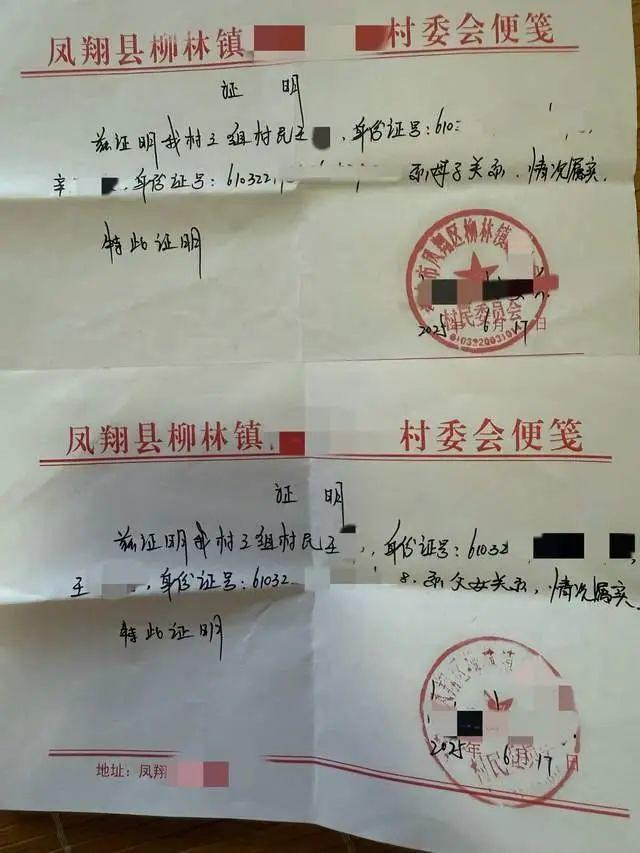 凤翔县柳林镇 村委会便笺
证 明
兹证明我村三组村民王 ,身份证号:610
辛 ,身份证号:610322 系母子关系,情况属实.
特此证明
市凤翔区柳林镇
村民委员会
2025年6月17日
凤翔县柳林镇 村委会便笺
证 明
兹证明我村三组村民王 ,身份证号:61032 ,
王 ,身份证号:61032 8.系父女关系,情况属实.
特此证明
村民
2025年6月17日
地址:凤翔